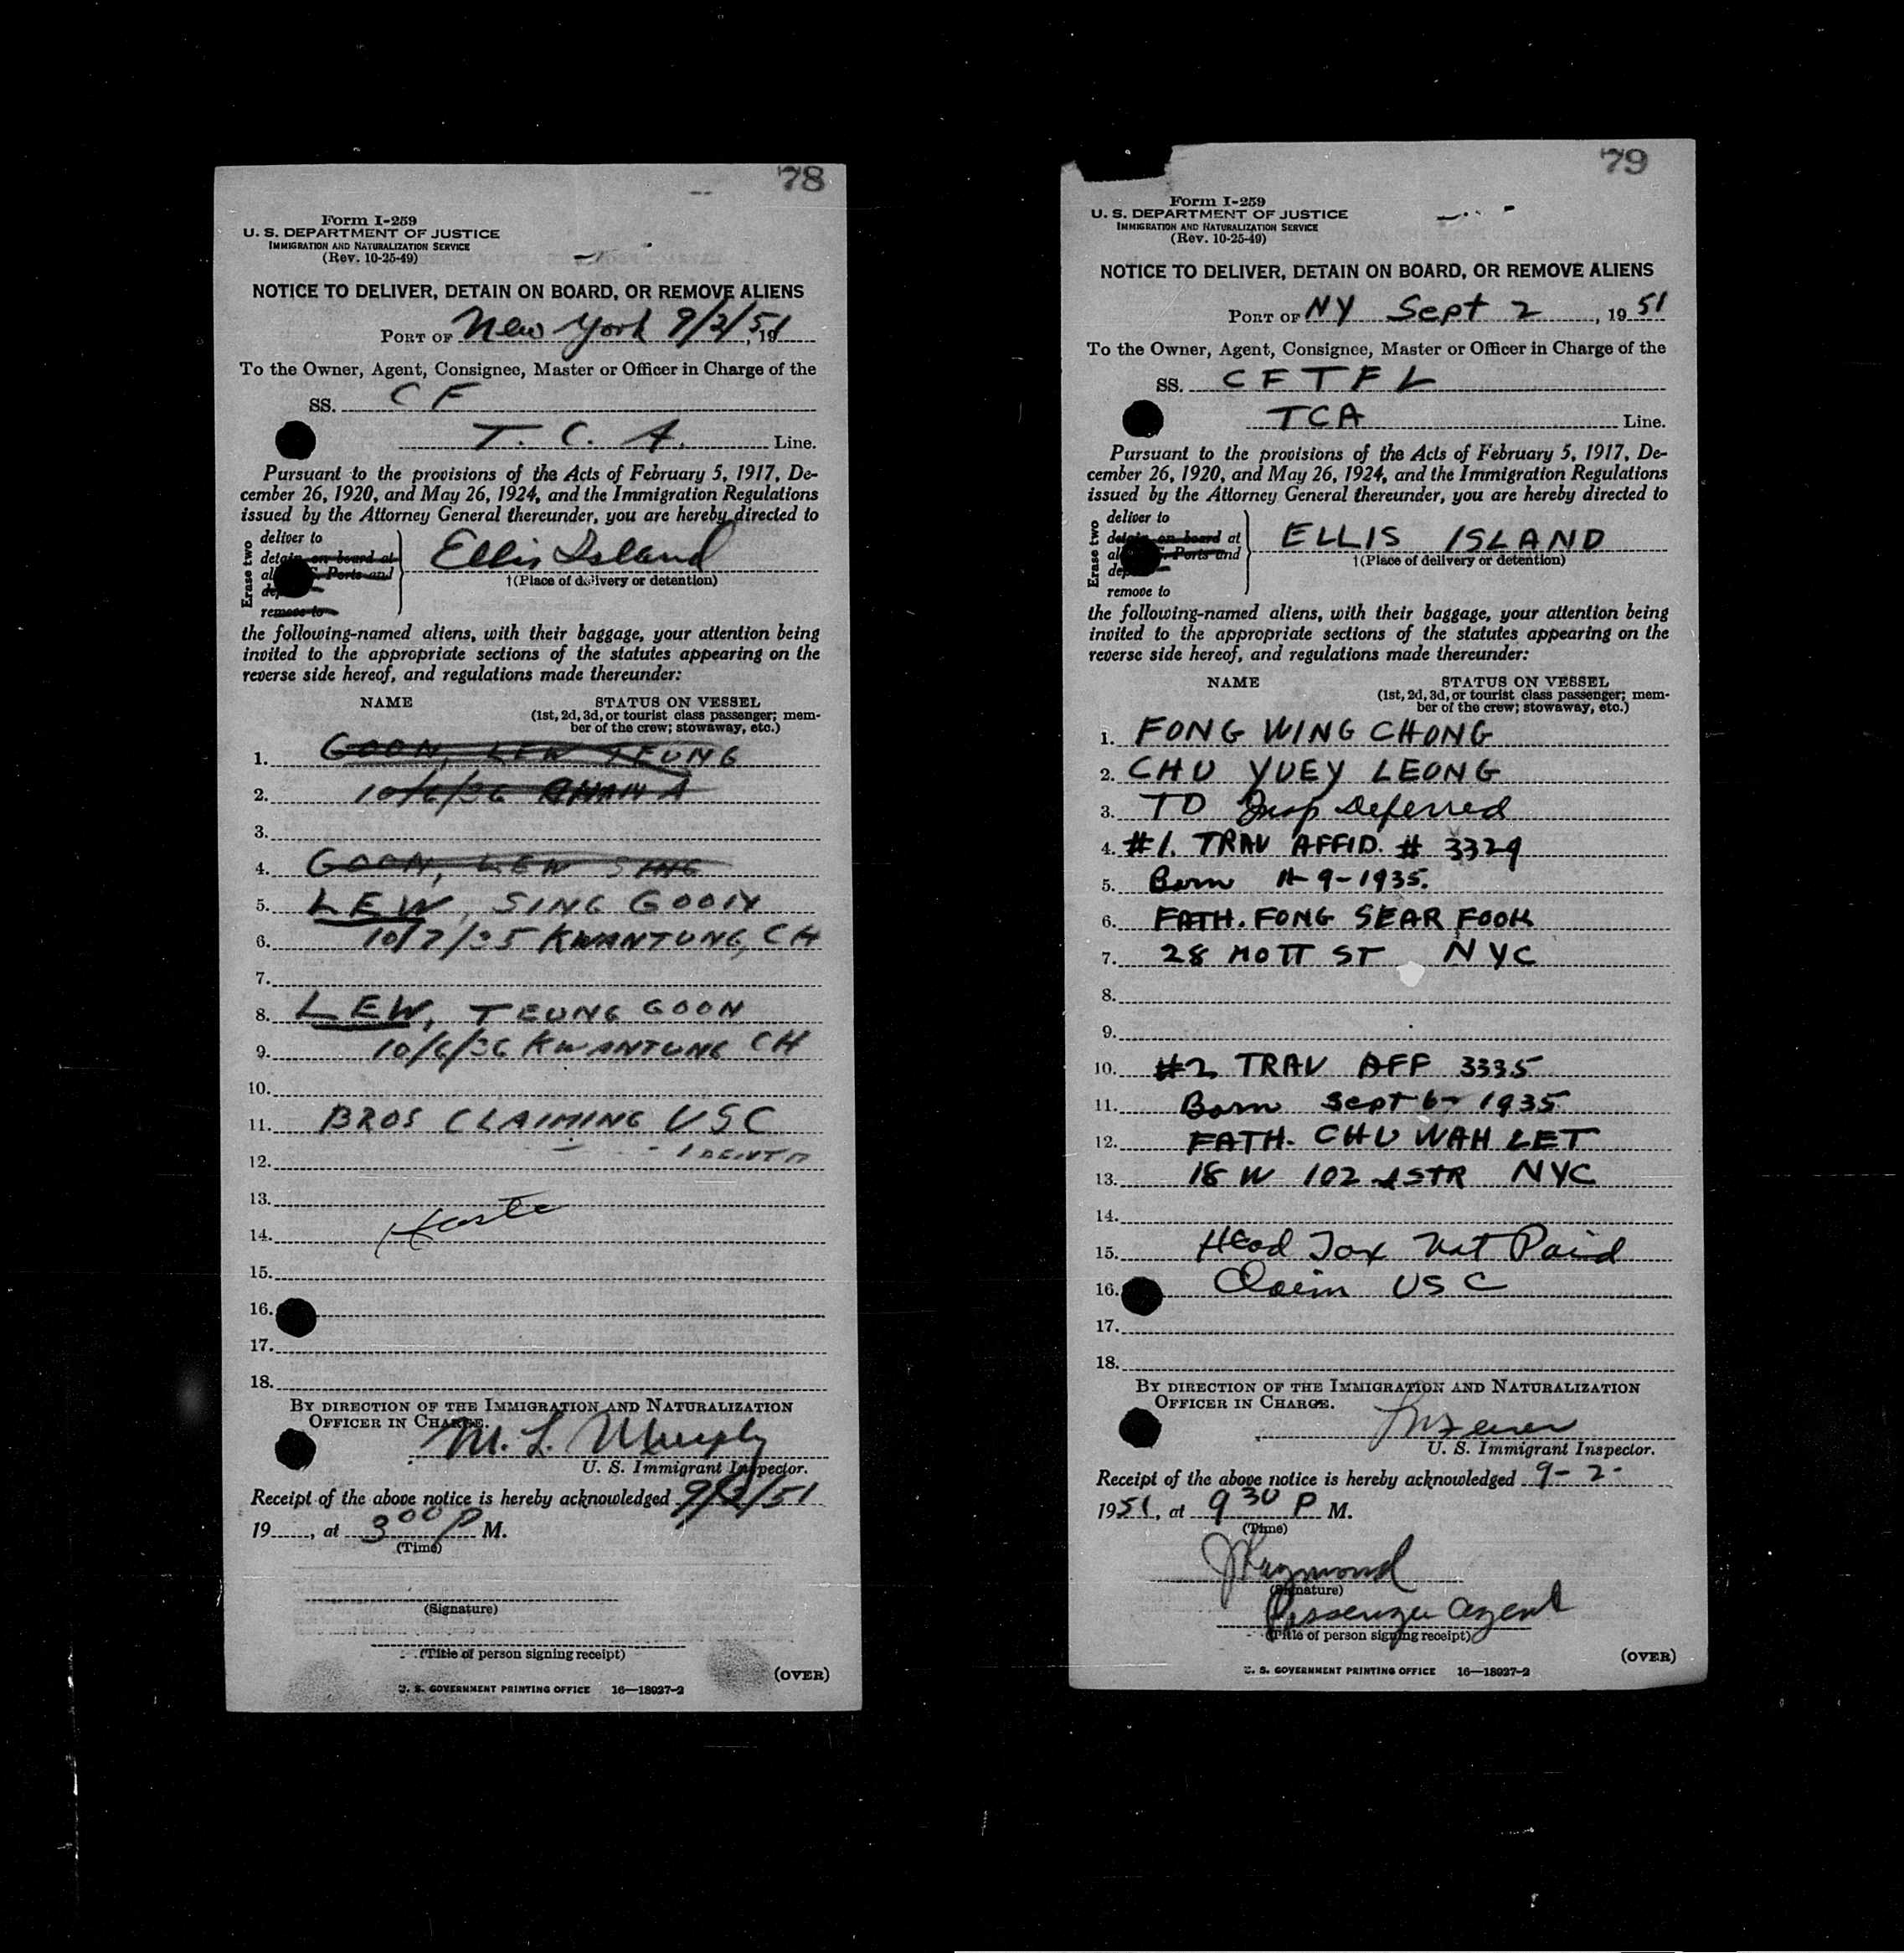 78
Form I-259
U. S. DEPARTMENT OF JUSTICE
IMMIGRATION AND NATURALIZATION SERVICE
(Rev. 10-25-49)
NOTICE TO DELIVER, DETAIN ON BOARD, OR REMOVE ALIENS
PORT OF New York 9/2/51, 19
To the Owner, Agent, Consignee, Master or Officer in Charge of the
SS. C F
T. C. A. Line.
Pursuant to the provisions of the Acts of February 5, 1917, De-
cember 26, 1920, and May 26, 1924, and the Immigration Regulations
issued by the Attorney General thereunder, you are hereby directed to
Erase two
deliver to
detain on board at
Ports and
remove to
Ellis Island
†(Place of delivery or detention)
the following-named aliens, with their baggage, your attention being
invited to the appropriate sections of the statutes appearing on the
reverse side hereof, and regulations made thereunder:
NAME STATUS ON VESSEL
(1st, 2d, 3d, or tourist class passenger; mem-
ber of the crew; stowaway, etc.)
1. GOON, LEW TEUNG
2. 10/6/36
3.
4. GOON, LEW SING
5. LEW, SING GOON
6. 10/7/35 KWANTUNG, CH
7.
8. LEW, TEUNG GOON
9. 10/6/36 KWANTUNG CH
10.
11. BROS CLAIMING USC
12.
13.
14.
15.
16.
17.
18.
BY DIRECTION OF THE IMMIGRATION AND NATURALIZATION
OFFICER IN CHARGE.
M. L. Murphy
U. S. Immigrant Inspector.
Receipt of the above notice is hereby acknowledged 9/2/51
19, at 3 00 P M.
(Time)
(Signature)
(Title of person signing receipt)
(OVER)
U. S. GOVERNMENT PRINTING OFFICE 16—18027-2
79
Form I-259
U. S. DEPARTMENT OF JUSTICE
IMMIGRATION AND NATURALIZATION SERVICE
(Rev. 10-25-49)
NOTICE TO DELIVER, DETAIN ON BOARD, OR REMOVE ALIENS
PORT OF NY Sept 2, 1951
To the Owner, Agent, Consignee, Master or Officer in Charge of the
SS. CFTFL
TCA Line.
Pursuant to the provisions of the Acts of February 5, 1917, De-
cember 26, 1920, and May 26, 1924, and the Immigration Regulations
issued by the Attorney General thereunder, you are hereby directed to
Erase two
deliver to
detain on board at
Ports and
remove to
ELLIS ISLAND
†(Place of delivery or detention)
the following-named aliens, with their baggage, your attention being
invited to the appropriate sections of the statutes appearing on the
reverse side hereof, and regulations made thereunder:
NAME STATUS ON VESSEL
(1st, 2d, 3d, or tourist class passenger; mem-
ber of the crew; stowaway, etc.)
1. FONG WING CHONG
2. CHU YUEY LEONG
3. TD Insp Deferred
4. #1. TRAV AFFID. # 3329
5. Born 11-9-1935.
6. FATH. FONG SEAR FOOK
7. 28 MOTT ST NYC
8.
9.
10. #2 TRAV AFF 3335
11. Born Sept 6- 1935
12. FATH. CHU WAH LET
13. 18 W 102 STR NYC
14.
15. Head Tax Not Paid
16. Claim USC
17.
18.
BY DIRECTION OF THE IMMIGRATION AND NATURALIZATION
OFFICER IN CHARGE.
U. S. Immigrant Inspector.
Receipt of the above notice is hereby acknowledged 9-2-
1951, at 9 30 P M.
(Time)
(Signature)
Passenger Agent
(Title of person signing receipt)
(OVER)
U. S. GOVERNMENT PRINTING OFFICE 16—18027-2